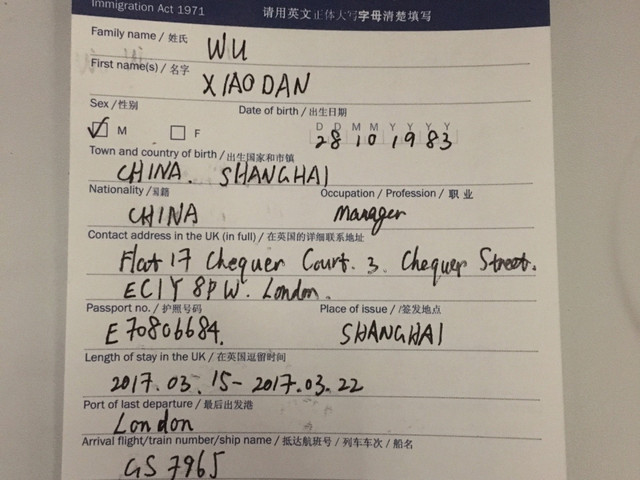 Immigration Act 1971 请用英文正体大写字母清楚填写
Family name / 姓氏 WU
First name(s) / 名字 XIAODAN
Sex / 性别 Date of birth / 出生日期
M F D D M M Y Y Y Y
28 10 1983
Town and country of birth / 出生国家和市镇
CHINA. SHANGHAI
Nationality / 国籍 Occupation / Profession / 职业
CHINA Manager
Contact address in the UK (in full) / 在英国的详细联系地址
Flat 17 Chequer Court. 3. Chequer Street.
EC1Y 8PW. London.
Passport no. / 护照号码 Place of issue / /签发地点
E70806684. SHANGHAI
Length of stay in the UK / 在英国逗留时间
2017.03.15-2017.03.22
Port of last departure / 最后出发港
London
Arrival flight/train number/ship name / 抵达航班号 / 列车车次 / 船名
GS7965